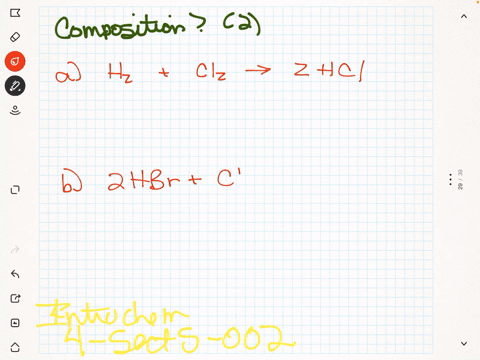 Composition? (2)
a) H₂ + Cl₂ → 2HCl
b) 2HBr + C
Intro chem
4-Sect 5-002
29 / 30